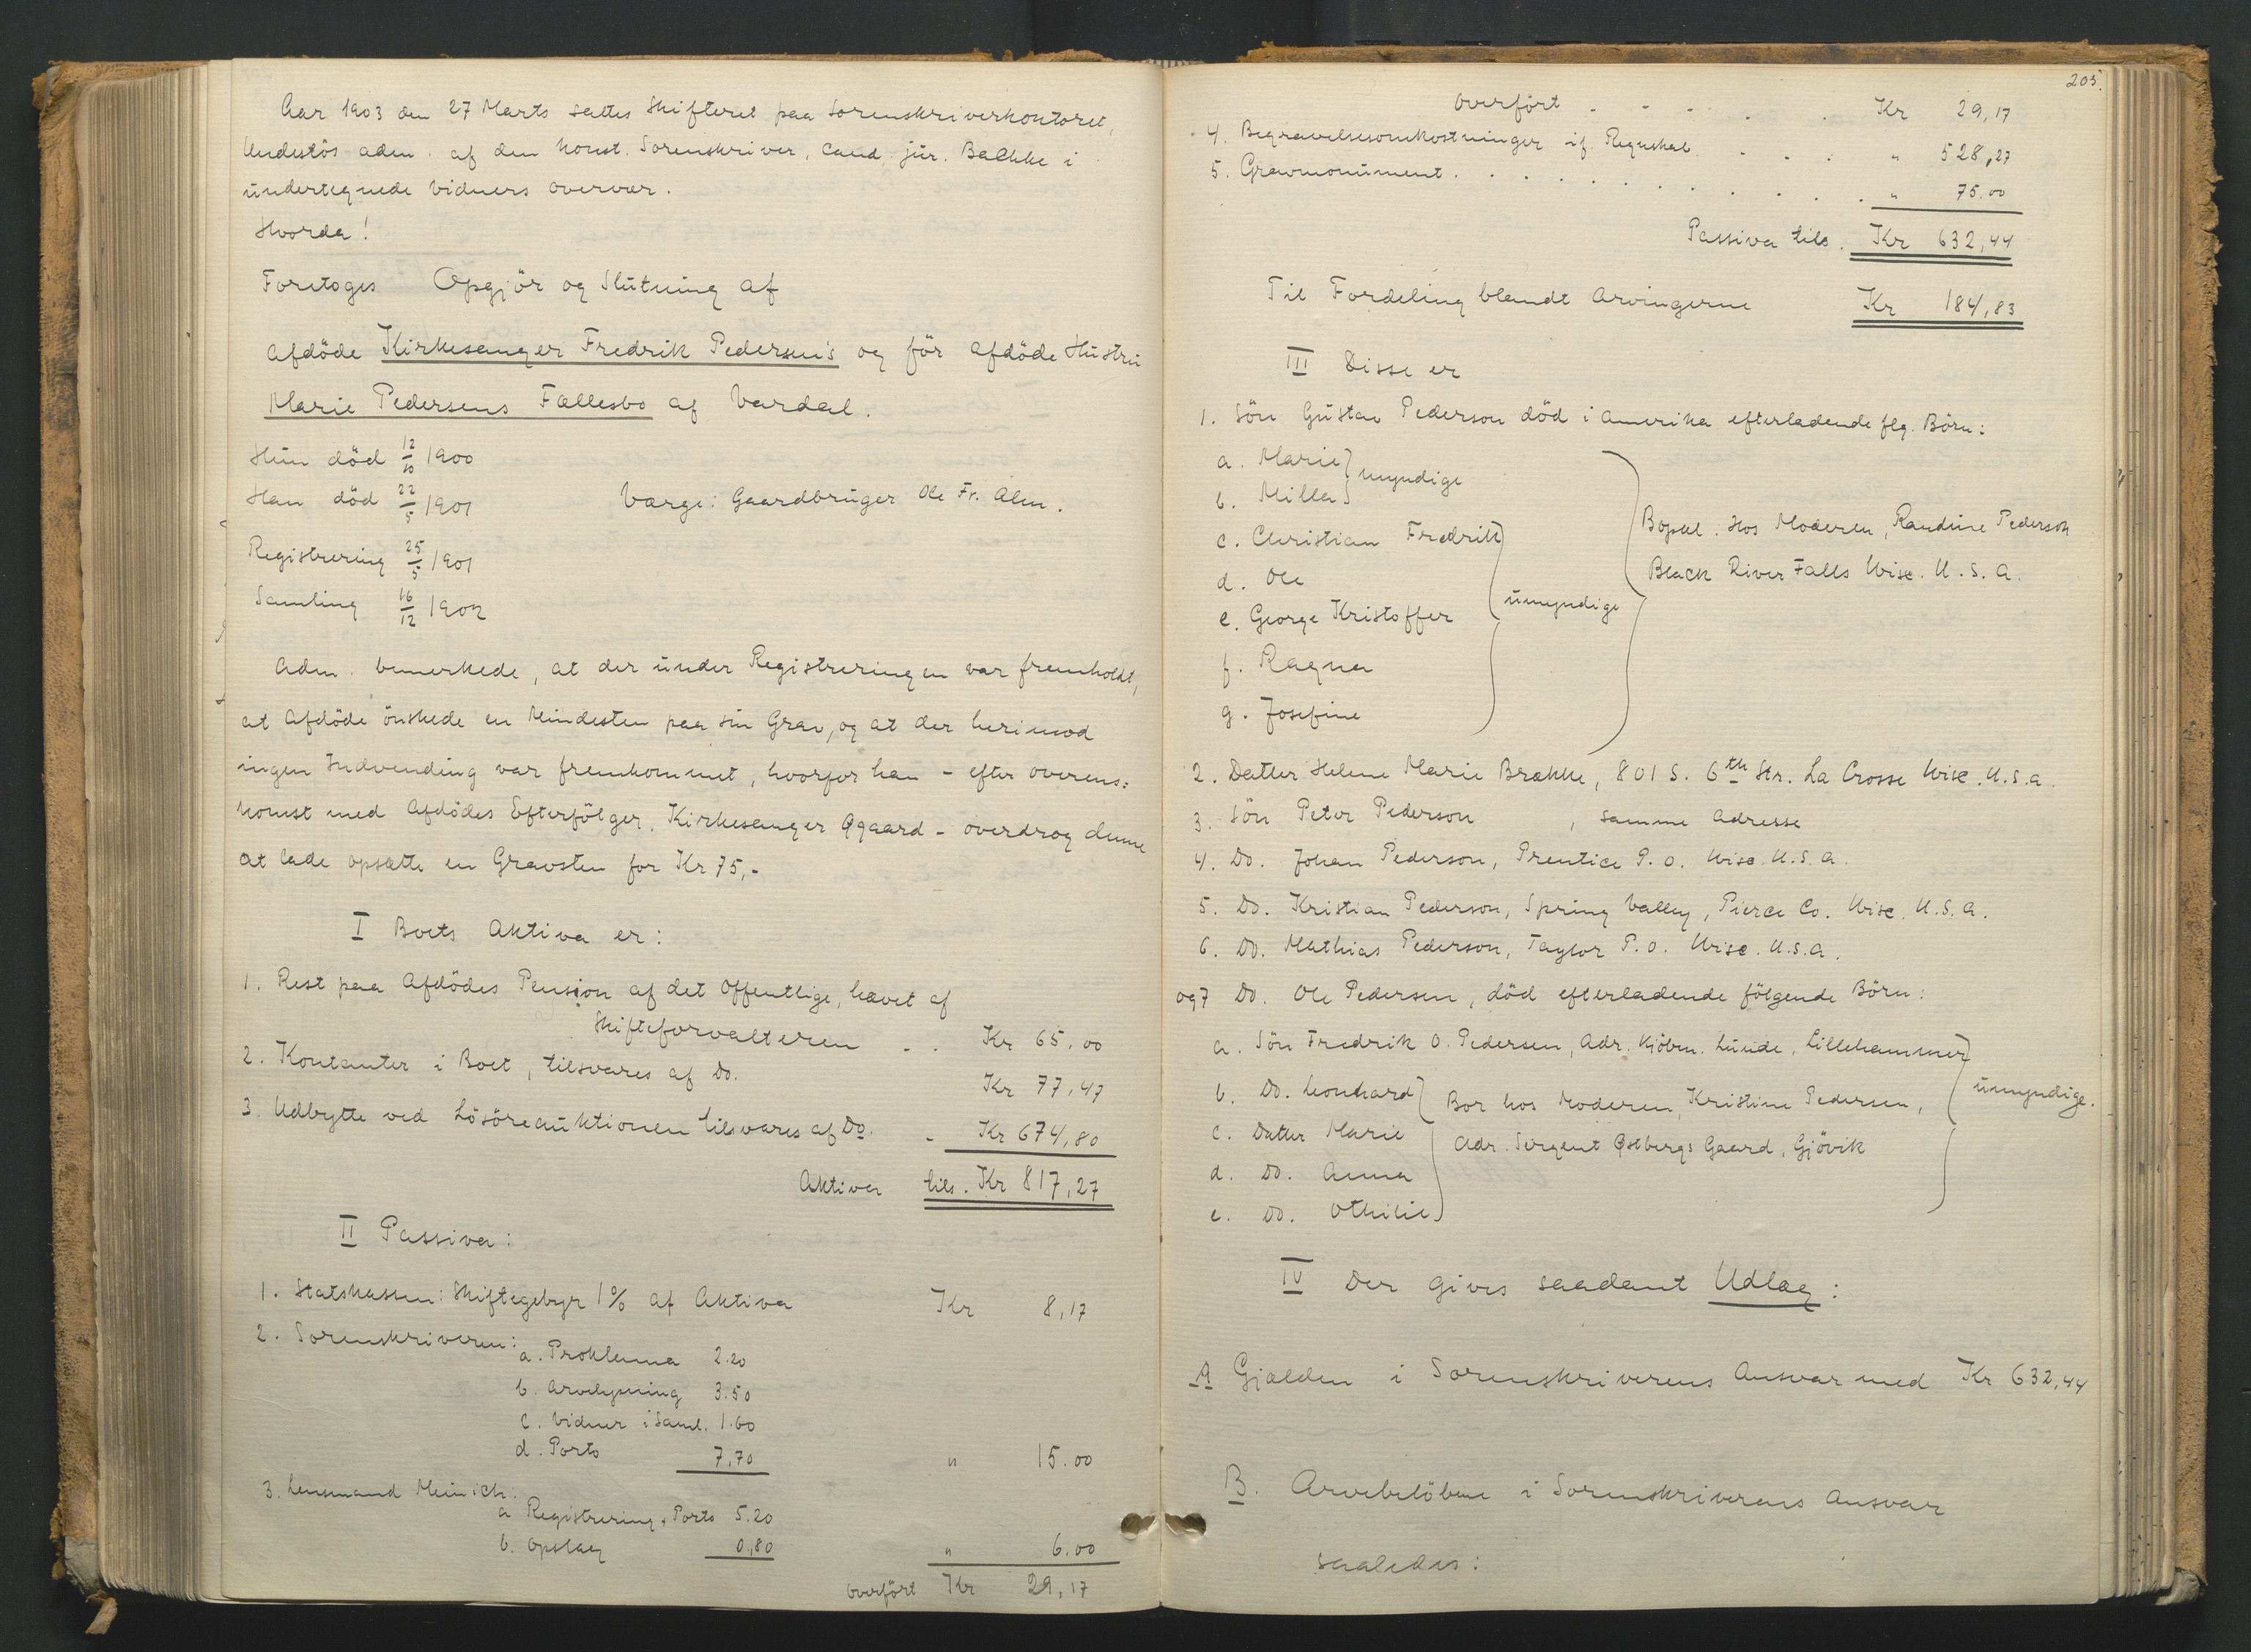 Aar 1903 den 27 Marts sattes Skifteret paa Sorenskriverkontoret,
Hundestøs adm. af den konst. Sorenskriver, cand. jur. Bachke i
undertegnede Vidners overvær.
Hvorda!
Foretoges Opgjör og Slutning af
afdöde Kirkesanger Fredrik Pedersen's og för afdöde Hustru
Marie Pedersens Fællesbo af Vardal.
Hun död 12/10 1900
Han död 22/5 1901 Værge: Gaardbruger Ole Fr. Alm.
Registrering 25/5 1901
Samling 16/12 1902
Adm. bemerkede, at der under Registreringen var fremholdt,
at Afdöde önskede en Mindesten paa sin Grav, og at der herimod
ingen Indvending var fremkommet, hvorfor han - efter overens=
komst med Afdödes Efterfölger, Kirkesanger Øgaard - overdrog denne
at lade opsætte en Gravsten for Kr 75,-
I Boets Aktiva er:
1. Rest paa Afdödes Pension af det Offentlige, hævet af
Skifteforvalteren . . Kr 65.00
2. Kontanter i Boet, tilsvares af Do. Kr 77,47
3. Udbytte ved Lösöreauktionen tilsvares af Do. - Kr 674,80
Aktiva tils. Kr 817,27
II Passiva:
1. Statskassen: Skiftegebyr 1% af Aktiva Kr 8,17
2. Sorenskriveren:
a. Proklama 2.20
b. Arvelysning 3.50
c. Vidner i Saml. 1.60
d. Porto 7,70 " 15.00
3. Lensmand Meinich:
a Registrering + Porto 5.20
b. Opslag 0.80 " 6.00
Overfört Kr 29,17
205.
Overfört - - - . . Kr 29,17
4. Begravelsesomkostninger if. Regnskab . . . " 528,27
5. Gravmonument . . . . . . . . . . " 75.00
Passiva tils. Kr 632,44
Til Fordeling blandt Arvingerne Kr 184,83
III Disse er
1. Sön Gustav Pederson död i Amerika efterladende flg. Börn:
a. Marie
b. Milla } myndige
c. Christian Fredrik
d. Ole
e. George Kristoffer } umyndige
f. Ragna
g. Josefine
Bopæl. Hos Moderen, Randine Pederson
Black River Falls Wisc. U.S.A.
2. Datter Helene Marie Brække, 801 S. 6th Str. La Crosse Wisc. U.S.A.
3. Sön Peter Pederson , samme Adresse
4. Do. Johan Pederson, Prentice P.O. Wisc. U.S.A.
5. Do. Kristian Pederson, Spring Valley, Pierce Co. Wisc. U.S.A.
6. Do. Mathias Pederson, Taylor P.O. Wisc. U.S.A.
og 7 Do. Ole Pedersen, död efterladende fölgende Börn:
a. Sön Fredrik O. Pedersen, Adr. Kjöbm. Lunde, Lillehammer
b. Do. Leonhard } Bor hos Moderen, Kristine Pedersen, } umyndige.
c. Datter Marie Adr. Sergent Østbergs Gaard, Gjövik
d. Do. Anna
e. Do. Othilie
IV Der gives saadant Udlæg:
A Gjælden i Sorenskriverens Ansvar med Kr 632,44
B. Arvebelöbene i Sorenskriverens Ansvar
saaledes: